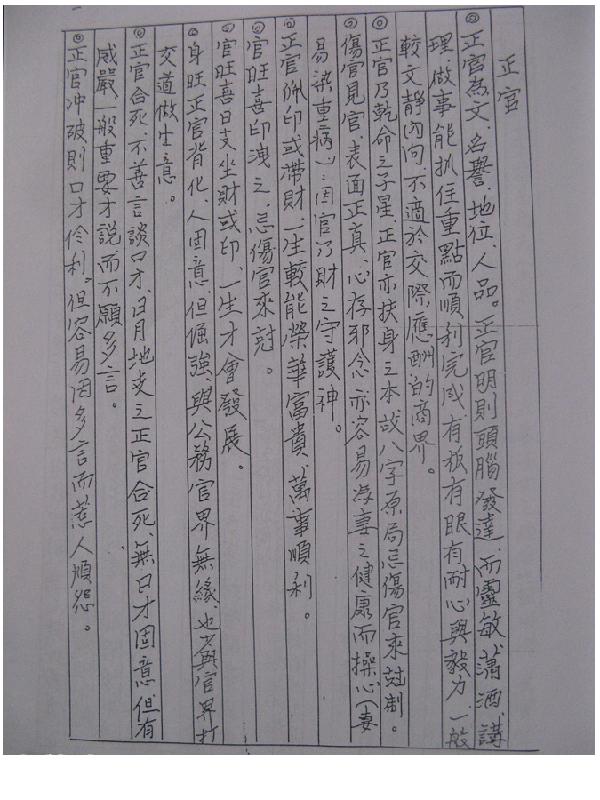 正官
◎正官為文、名譽、地位、人品。正官明則頭腦發達、而靈敏、瀟洒、講
理、做事能抓住重點而順利完成、有狠有眼有耐心與毅力、一般
較文靜內向、不適於交際應酬的商界。
◎正官乃乾命之子星、正官亦扶身之本故八字原局忌傷官來尅制。
◎傷官見官、表面正真、心存邪念亦容易為妻之健康而操心(妻
易染重病):因官乃財之守護神。
◎正官佩印或帶財、一生較能榮華富貴、萬事順利。
◎官旺喜印洩之、忌傷官來尅。
◎官旺喜日支坐財或印、一生才會發展。
◎身旺正官背化、人固意、但倔強、與公務官界無緣、也少與官界打
交道做生意。
◎正官合死、不善言談口才、日月地支之正官合死、無口才固意、但有
威嚴、一般重要才說而不願多言。
◎正官冲破則口才伶利。但容易因多言而惹人煩怨。